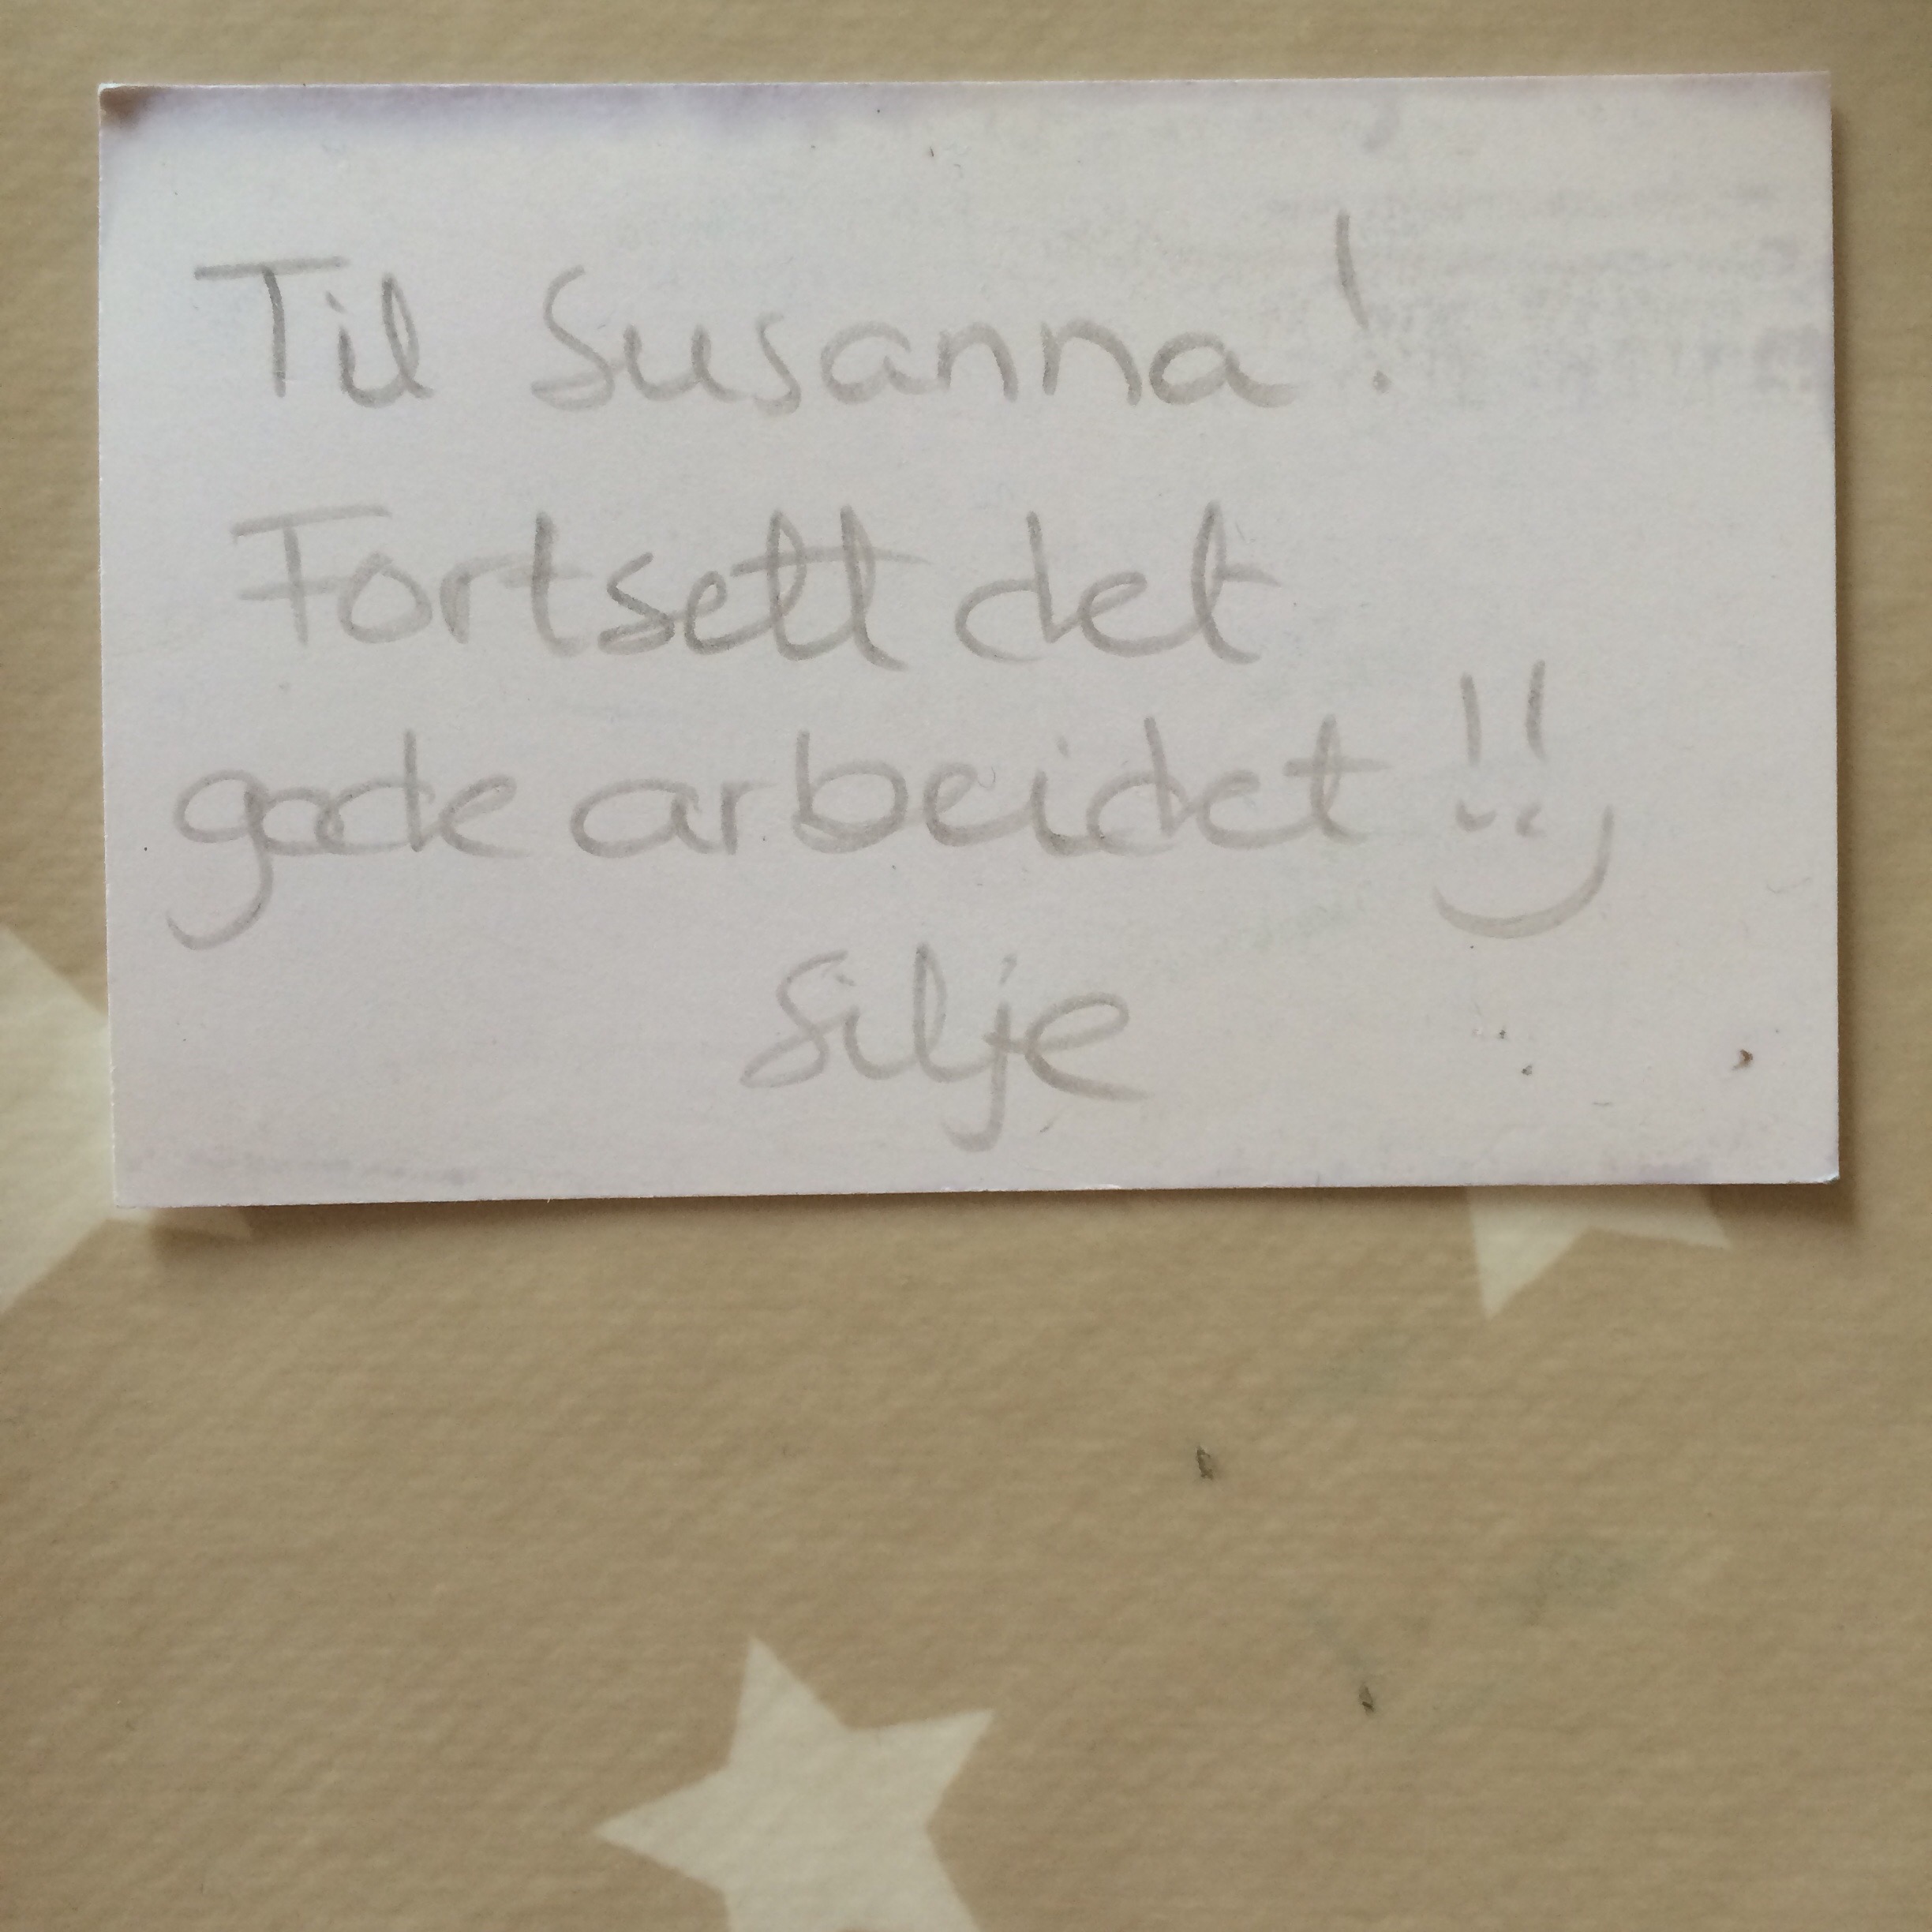 Til Susanna!
Fortsett det
gode arbeidet!!
Silje